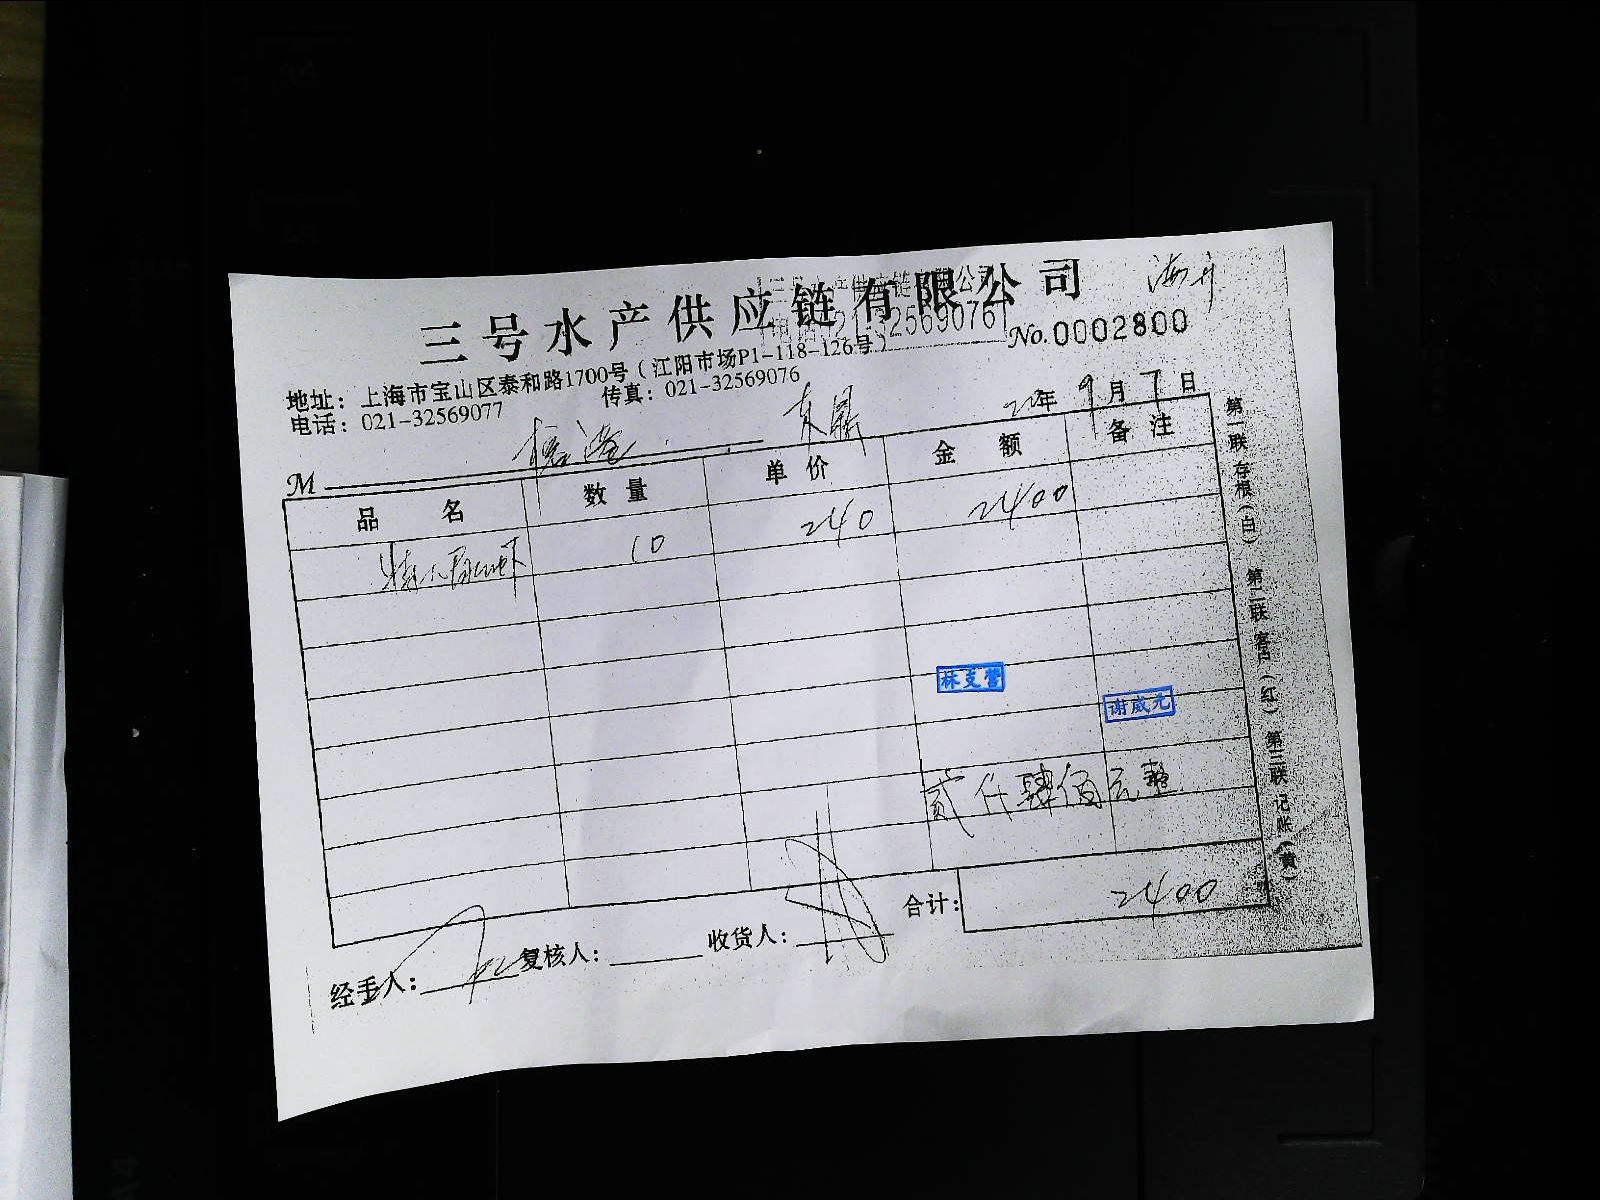 三号水产供应链有限公司
三号水产供应链有限公司
021-32569076
No.0002800
地址：上海市宝山区泰和路1700号（江阳市场P1-118-126号）
电话：021-32569077 传真：021-32569076
年 9月7日
M
品 名 数 量 单 价 金 额 备 注
10 240 2400
林支营
谢威光
贰仟肆佰元整
合计：2400
经手人： 复核人： 收货人：
第一联存根（白） 第二联客户（红） 第三联记账（黄）